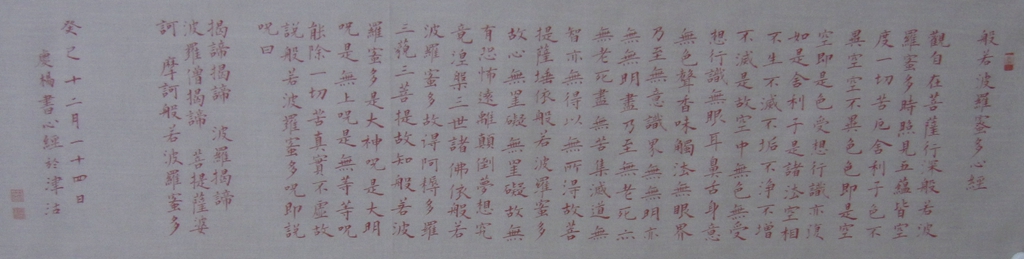 般若波羅蜜多心經
觀自在菩薩行深般若波
羅蜜多時照見五蘊皆空
度一切苦厄舍利子色不
異空空不異色色即是空
空即是色受想行識亦復
如是舍利子是諸法空相
不生不滅不垢不淨不增
不減是故空中無色無受
想行識無眼耳鼻舌身意
無色聲香味觸法無眼界
乃至無意識界無無明亦
無無明盡乃至無老死亦
無老死盡無苦集滅道無
智亦無得以無所得故菩
提薩埵依般若波羅蜜多
故心無罣礙無罣礙故無
有恐怖遠離顛倒夢想究
竟涅槃三世諸佛依般若
波羅蜜多故得阿耨多羅
三藐三菩提故知般若波
羅蜜多是大神呪是大明
呪是無上呪是無等等呪
能除一切苦真實不虛故
説般若波羅蜜多呪即説
呪曰
揭諦揭諦 波羅揭諦
波羅僧揭諦 菩提薩婆
訶 摩訶般若波羅蜜多
癸巳十二月一十四日
書心經於津沽